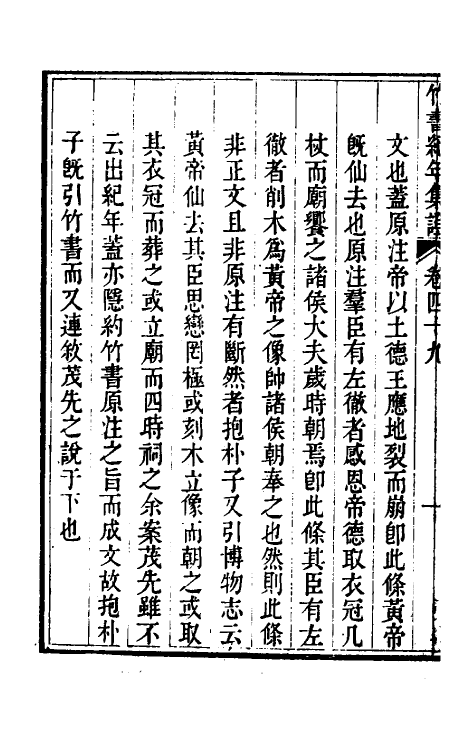 竹書紀年集證 卷四十九 十
文也蓋原注帝以土德王應地裂而崩卽此條黃帝
旣仙去也原注羣臣有左徹者感思帝德取衣冠几
杖而廟饗之諸侯大夫歲時朝焉卽此條其臣有左
徹者削木爲黃帝之像帥諸侯朝奉之也然則此條
非正文且非原注有斷然者抱朴子又引博物志云
黃帝仙去其臣思戀罔極或刻木立像而朝之或取
其衣冠而葬之或立廟而四時祠之余案茂先雖不
云出紀年蓋亦隱約竹書原注之旨而成文故抱朴
子旣引竹書而又連敘茂先之說于下也